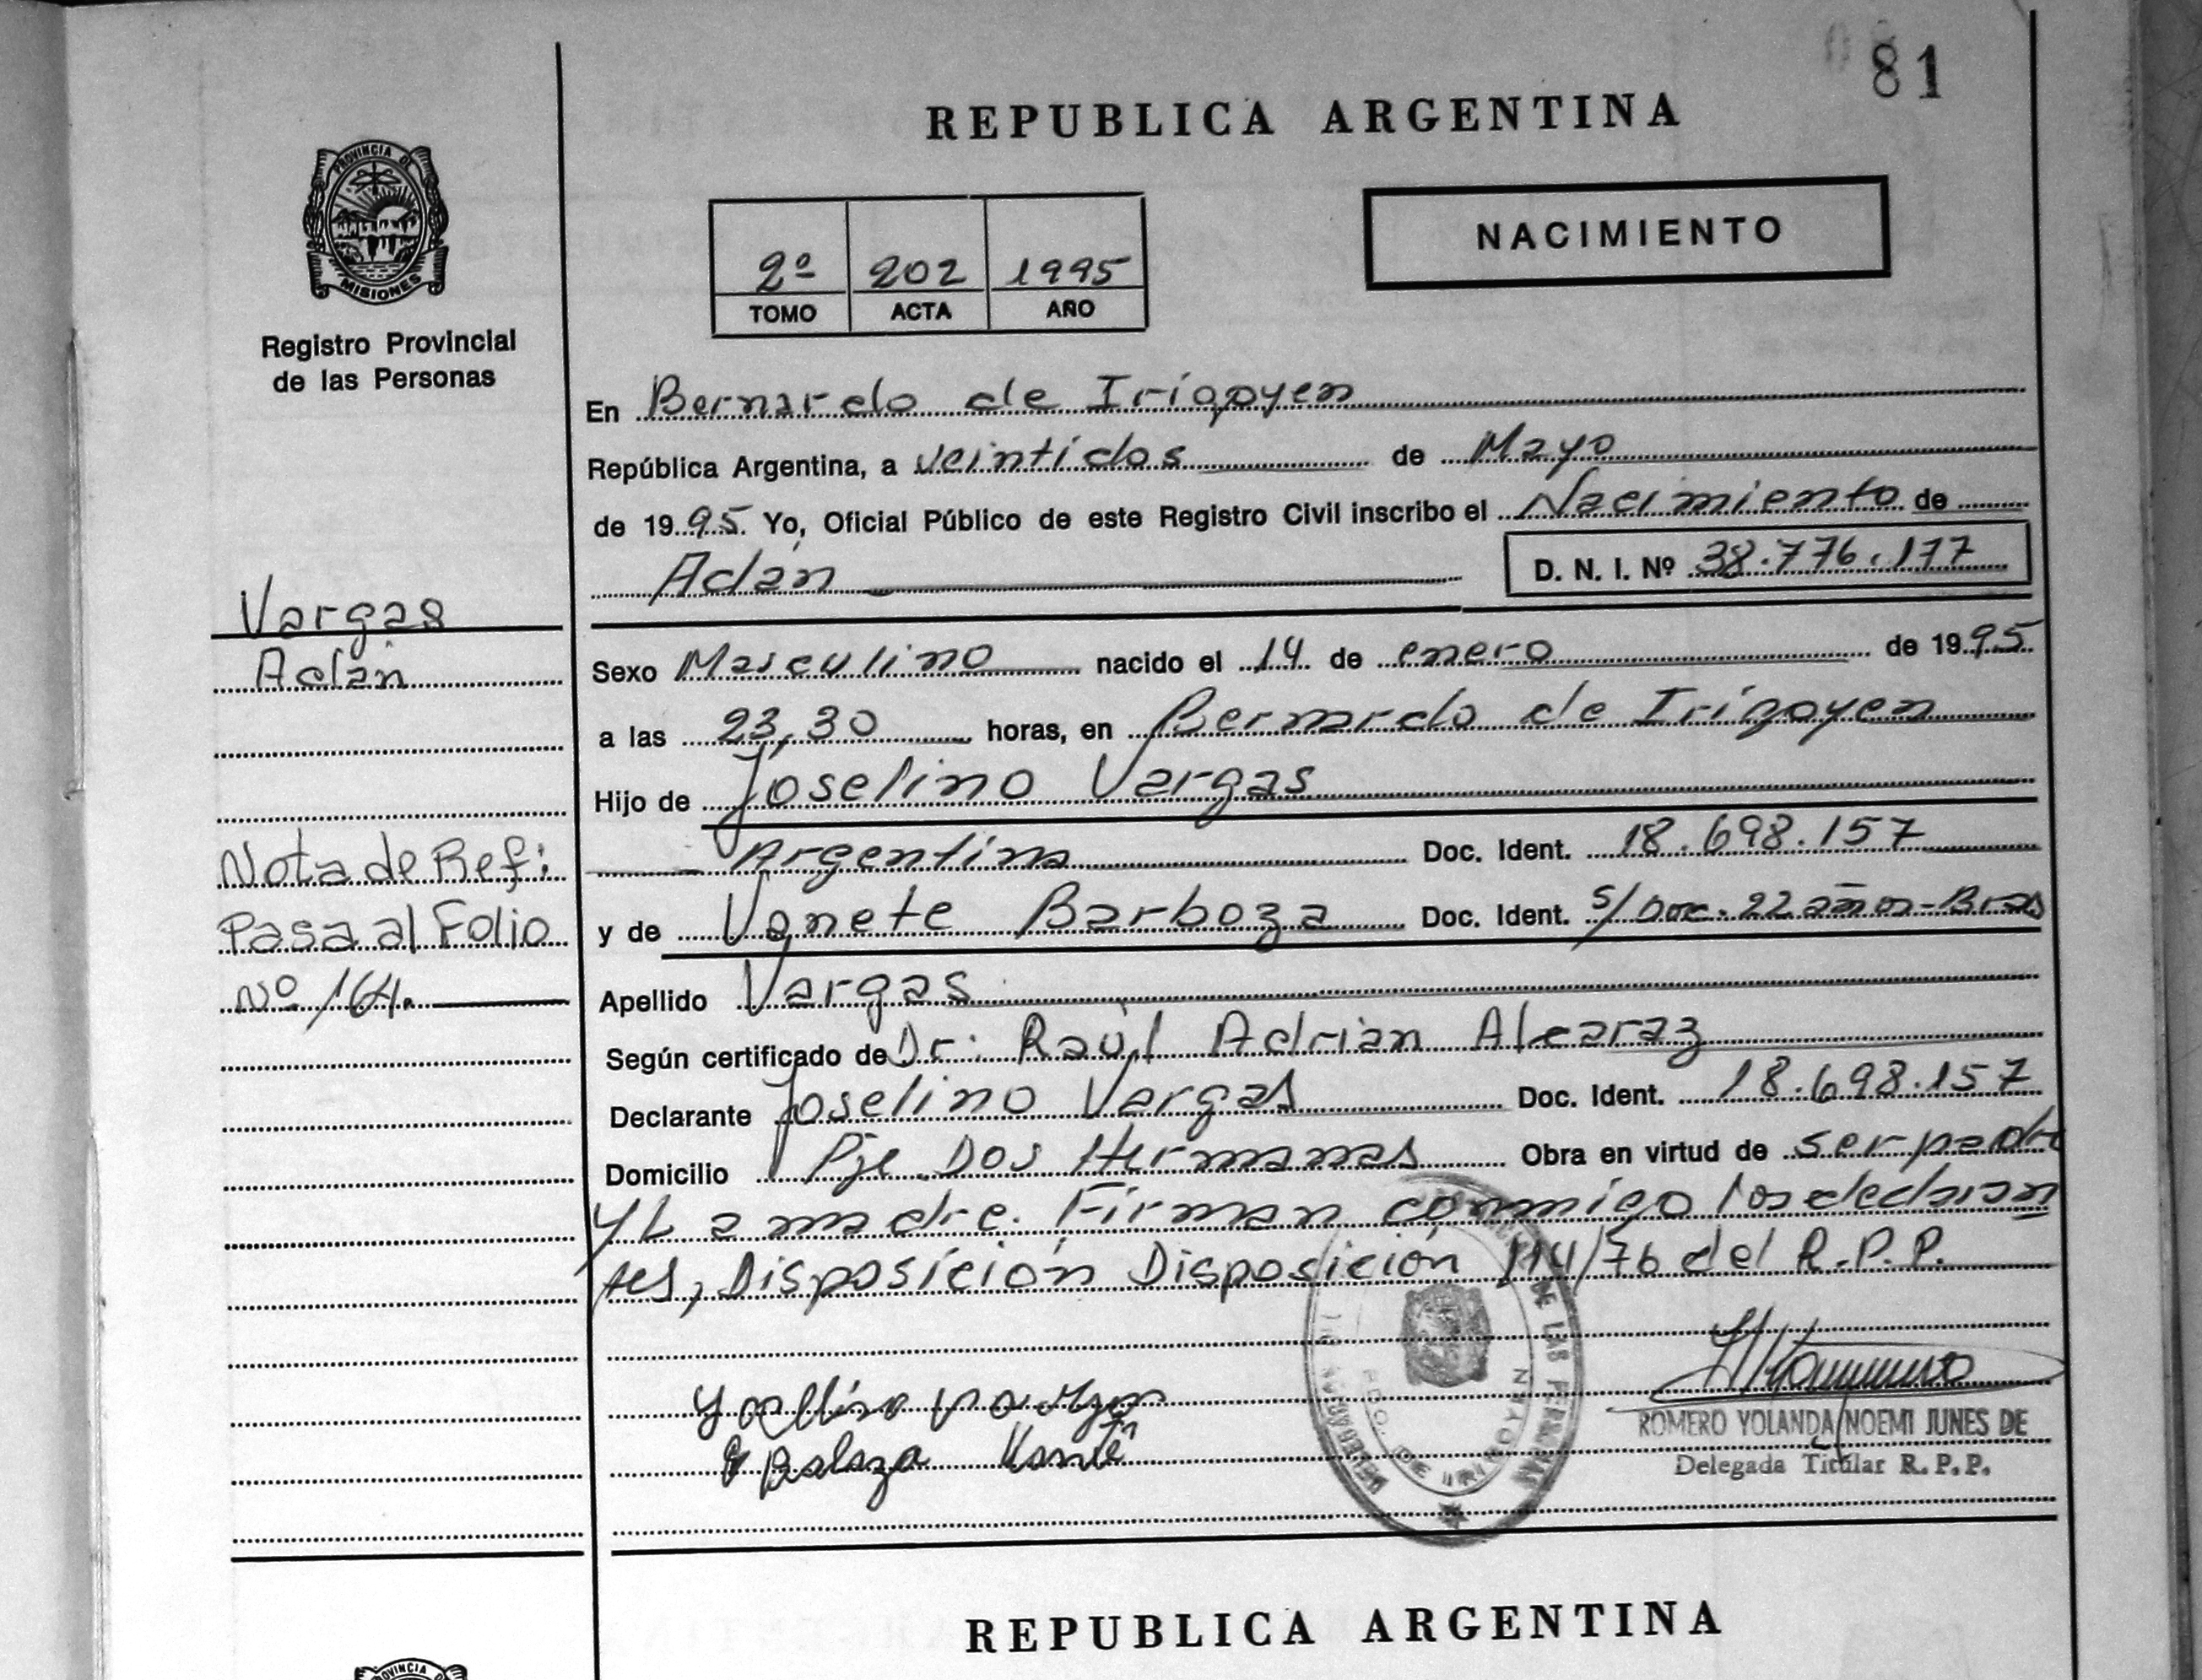 81
REPUBLICA ARGENTINA
PROVINCIA DE
MISIONES
Registro Provincial
de las Personas
NACIMIENTO
2º 202 1995
TOMO ACTA AÑO
En Bernardo de Irigoyen
República Argentina, a veintidos de Mayo
de 1995 Yo, Oficial Público de este Registro Civil inscribo el Nacimiento de
Adán D. N. I. Nº 38.776.177
Vargas
Adán
Sexo Masculino nacido el 14 de enero de 1995
a las 23,30 horas, en Bernardo de Irigoyen
Hijo de Joselino Vargas
Argentina Doc. Ident. 18.698.157
y de Vonete Barboza Doc. Ident. s/Doc. 22 años-Bras
Nota de Ref:
Pasa al Folio
Nº 164.
Apellido Vargas
Según certificado de Dr: Raúl Adrian Alcaraz
Declarante Joselino Vargas Doc. Ident. 18.698.157
Domicilio Pje Dos Hermanas Obra en virtud de ser padre
y La madre. Firman conmigo los declaran
tes, Disposición Disposición 114/76 del R.P.P.
DE LAS PERSONAS
BDO. DE IRIGOYEN
ROMERO YOLANDA NOEMI JUNES DE
Delegada Titular R.P.P.
REPUBLICA ARGENTINA
PROVINCIA DE